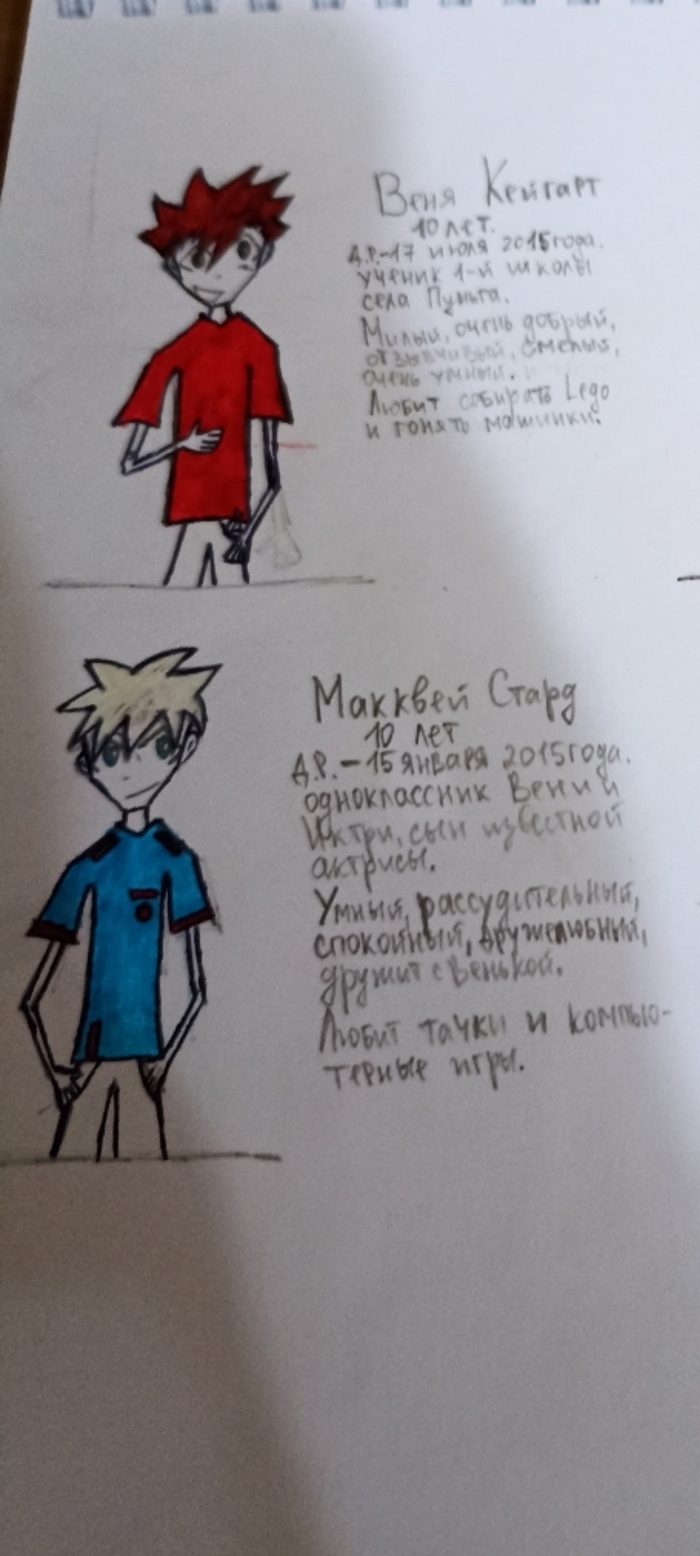 Веня Кейгарт
10 лет.
Д.Р.-17 июля 2015года.
ученик 1-й школы
села Пуньга.
Милый, очень добрый,
отзывчивый, смелый,
очень умный.
Любит собирать Lego
и гонять машинки.
Макквей Стард
10 лет
Д.Р.-15 января 2015года.
одноклассник Вени и
Иктри, сын известной
актрисы.
Умный, рассудительный,
спокойный, дружелюбный,
дружит с Венькой.
Любит тачки и компью-
терные игры.